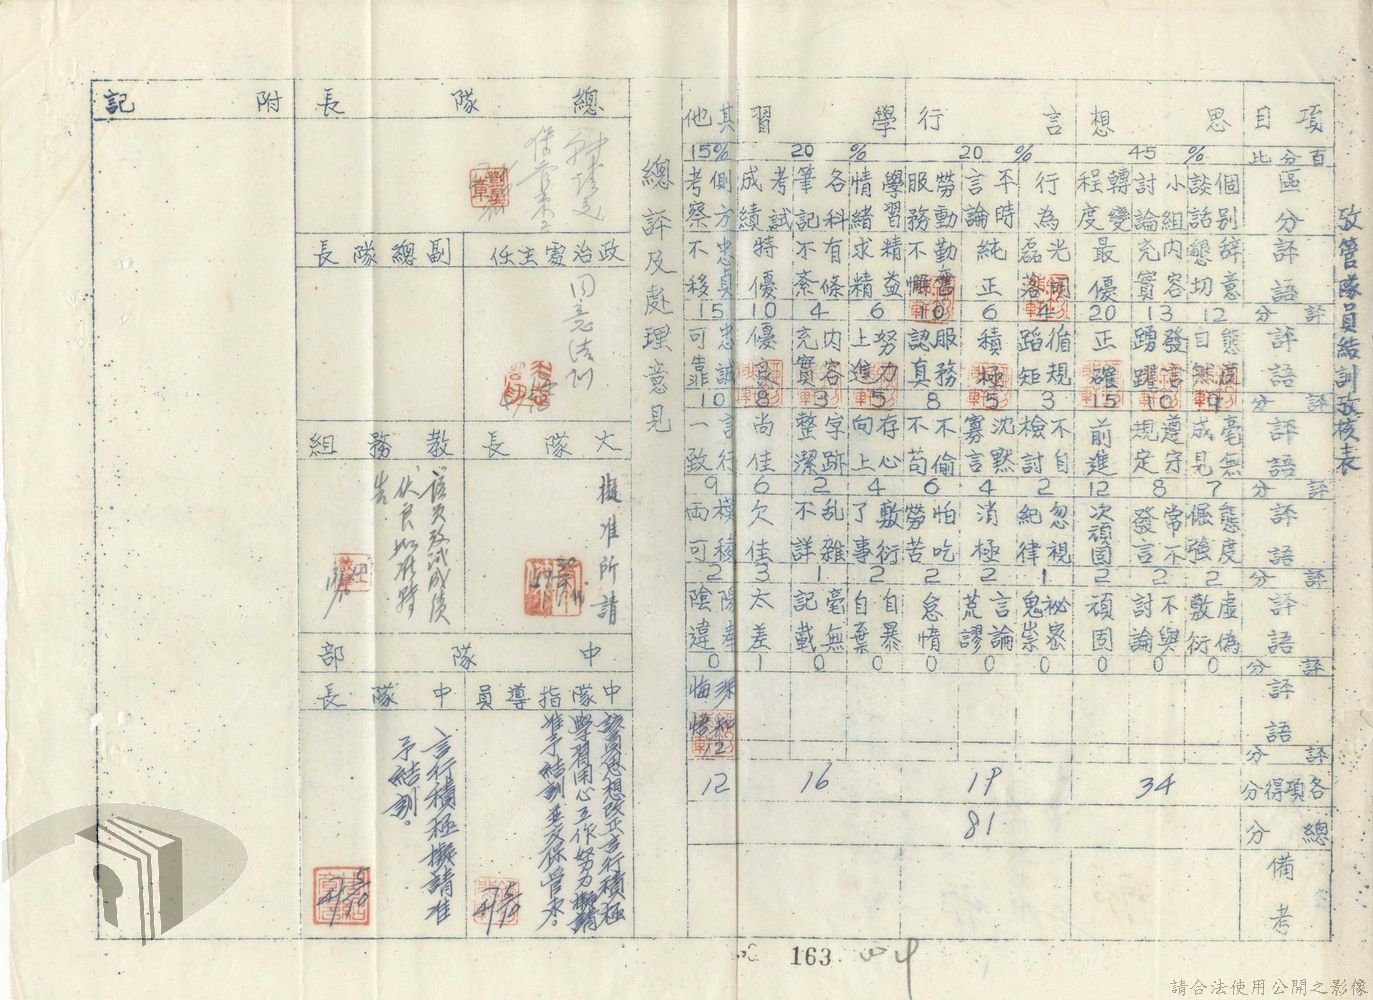 攷管隊員結訓攷核表
項目 思想 言行 學習 其他
百分比 45% 20% 20% 15%
區分
個別談話
小組討論
轉變程度
行為
平時言論
勞動服務
學習情緒
各科筆記
考試成績
側方考察
評語
辭意懇切
內容充實
最優
光明磊落
純正
勤奮不懈
精益求精
有條不紊
特優
忠貞不移
評分 12 13 20 4 6 10 6 4 10 15
評語
態度自然
發言踴躍
正確
循規蹈矩
積極
服務認真
努力上進
內容充實
優良
忠誠可靠
評分 9 10 15 3 5 8 5 3 8 10
評語
毫無成見
遵守規定
前進
不自檢討
沈默寡言
不偷不苟
存心向上
字跡整潔
尚佳
言行一致
評分 7 8 12 2 4 6 4 2 6 9
評語
態度倔強
常不發言
次頑固
忽視紀律
消極
怕吃勞苦
敷衍了事
亂雜不詳
欠佳
模稜兩可
評分 2 2 2 1 2 2 2 1 3 2
評語
虛偽敷衍
不與討論
頑固
秘密鬼祟
言論荒謬
怠惰
自暴自棄
毫無記載
太差
陽奉陰違
評分 0 0 0 0 0 0 0 0 1 0
評語
深知悔悟
評分 12
各項得分 34 19 16 12
總分 81
備考
總評及處理意見
總隊長
政治處主任
副總隊長
大隊長
擬准所請
教務組
中隊部
中隊指導員
該員思想改正言行積極
學習用心工作努力擬請
准予結訓並交保管束。
中隊長
言行積極擬請准
予結訓。
附記
163
請合法使用公開之影像